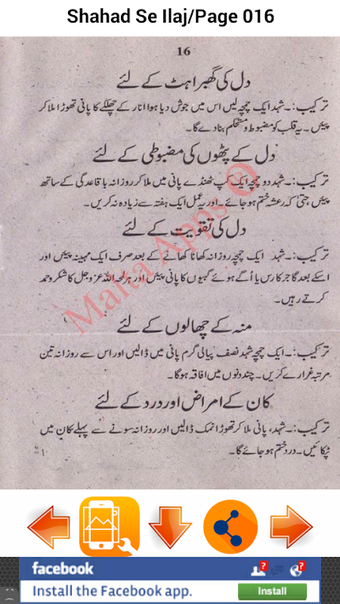 Shahad Se Ilaj/Page 016
16
دل کی گھبراہٹ کے لئے
ترکیب:۔ شہد ایک چمچہ لیں اس میں جوش دیا ہوا انار کے چھلکے کا پانی تھوڑا ملا کر
پیئں۔ یہ قلب کو مضبوط و مستحکم بنا دے گا۔
دل کے پٹھوں کی مضبوطی کے لئے
ترکیب:۔ شہد دو چمچہ ایک کپ ٹھنڈے پانی میں ملا کر روزانہ باقاعدگی کے ساتھ
پیئں حتیٰ کہ رعشہ ختم ہو جائے۔ اور یہ عمل ایک ہفتہ سے زیادہ نہ کریں۔
دل کی تقویت کے لئے
ترکیب:۔ شہد ایک چمچہ روزانہ کھانا کھانے کے بعد صرف ایک مہینہ پیئں اور
اسکے بعد گاجر کا رس یا اُگے ہوئے گیہوں کا پانی پیئں اور ہر لمحہ اللہ عزوجل کا شکر و حمد
کرتے رہیں۔
منہ کے چھالوں کے لئے
ترکیب:۔ ایک چمچ شہد نصف پیالی گرم پانی میں ڈالیں اور اس سے روزانہ تین
مرتبہ غرارے کریں۔ چند دنوں میں افاقہ ہوگا۔
کان کے امراض اور درد کے لئے
ترکیب:۔ شہد، پانی ملا کر تھوڑا نمک ڈالیں اور روزانہ سونے سے پہلے کان میں
ٹپکائیں۔ درد ختم ہو جائے گا۔
Malta Apps ©
facebook
Install the Facebook app.
Install